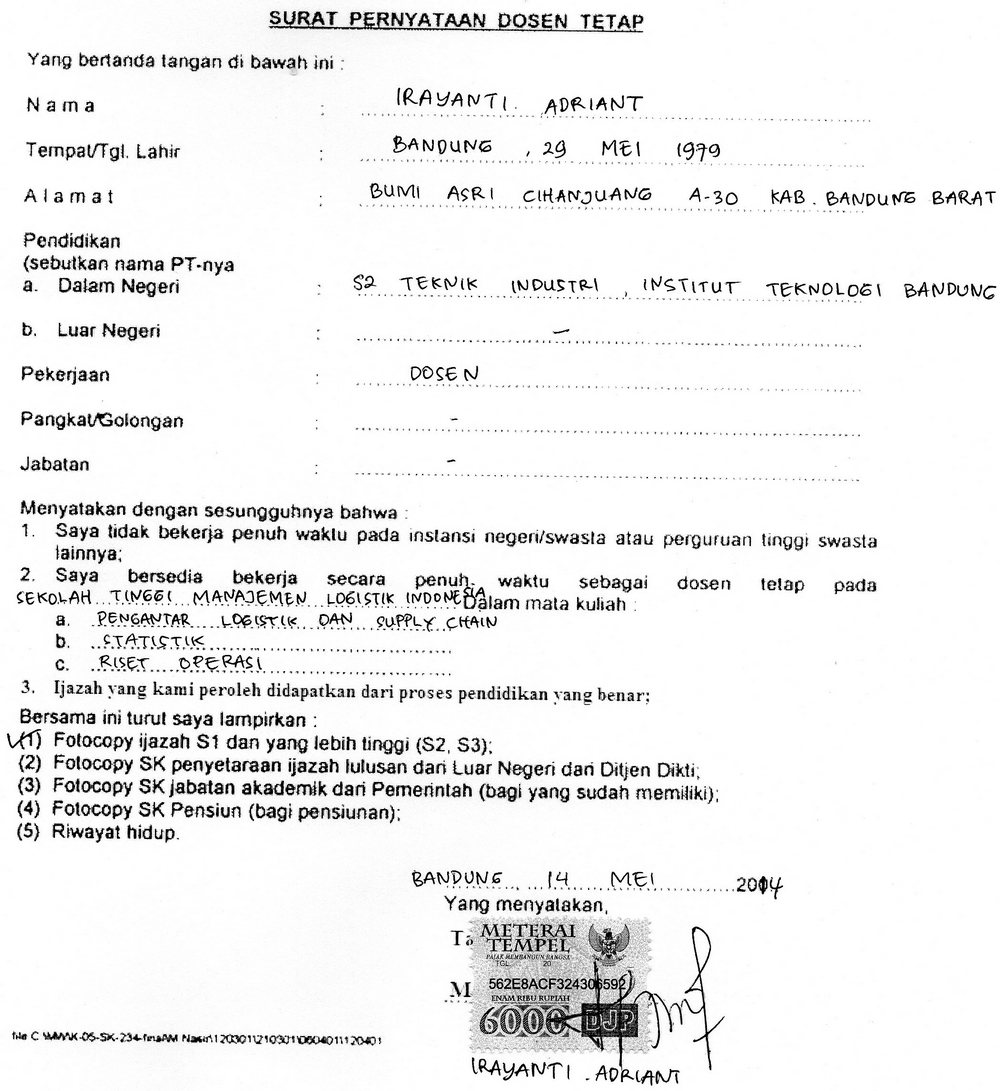 SURAT PERNYATAAN DOSEN TETAP
Yang bertanda tangan di bawah ini :
N a m a : IRAYANTI. ADRIANT
Tempat/Tgl. Lahir : BANDUNG , 29 MEI 1979
A l a m a t : BUMI ASRI CIHANJUANG A-30 KAB. BANDUNG BARAT
Pendidikan
(sebutkan nama PT-nya
a. Dalam Negeri : S2 TEKNIK INDUSTRI , INSTITUT TEKNOLOGI BANDUNG
b. Luar Negeri : –
Pekerjaan : DOSEN
Pangkat/Golongan : -
Jabatan : -
Menyatakan dengan sesungguhnya bahwa :
1. Saya tidak bekerja penuh waktu pada instansi negeri/swasta atau perguruan tinggi swasta
lainnya;
2. Saya bersedia bekerja secara penuh waktu sebagai dosen tetap pada
SEKOLAH TINGGI MANAJEMEN LOGISTIK INDONESIA Dalam mata kuliah :
a. PENGANTAR LOGISTIK DAN SUPPLY CHAIN
b. STATISTIK
c. RISET OPERASI
3. Ijazah yang kami peroleh didapatkan dari proses pendidikan yang benar;
Bersama ini turut saya lampirkan :
(1) Fotocopy ijazah S1 dan yang lebih tinggi (S2, S3);
(2) Fotocopy SK penyetaraan ijazah lulusan dari Luar Negeri dari Ditjen Dikti;
(3) Fotocopy SK jabatan akademik dari Pemerintah (bagi yang sudah memiliki);
(4) Fotocopy SK Pensiun (bagi pensiunan);
(5) Riwayat hidup.
BANDUNG, 14 MEI 2014
Yang menyatakan,
METERAI
TEMPEL
PAJAK MEMBANGUN BANGSA
TGL. 20
562E8ACF324306592
ENAM RIBU RUPIAH
6000 DJP
IRAYANTI . ADRIANT